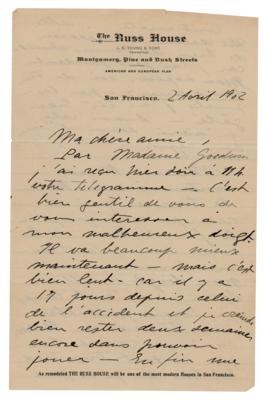 The Russ House
J. S. YOUNG & SONS
PROPRIETORS
Montgomery, Pine and Bush Streets
AMERICAN AND EUROPEAN PLAN
San Francisco, 2 Avril 1902
Ma chère amie,
Par Madame Goodwin
j'ai reçu hier soir à 11 h
votre télégramme – C'est
bien gentil de vous de
vous intéresser à
mon malheureux doigt.
Il va beaucoup mieux
maintenant – mais c'est
bien lent – car il y a
17 jours depuis celui
de l'accident et je
bien rester deux semaines
encore sans pouvoir
jouer – Enfin
As remodeled THE RUSS HOUSE will be one of the most modern Houses in San Francisco.